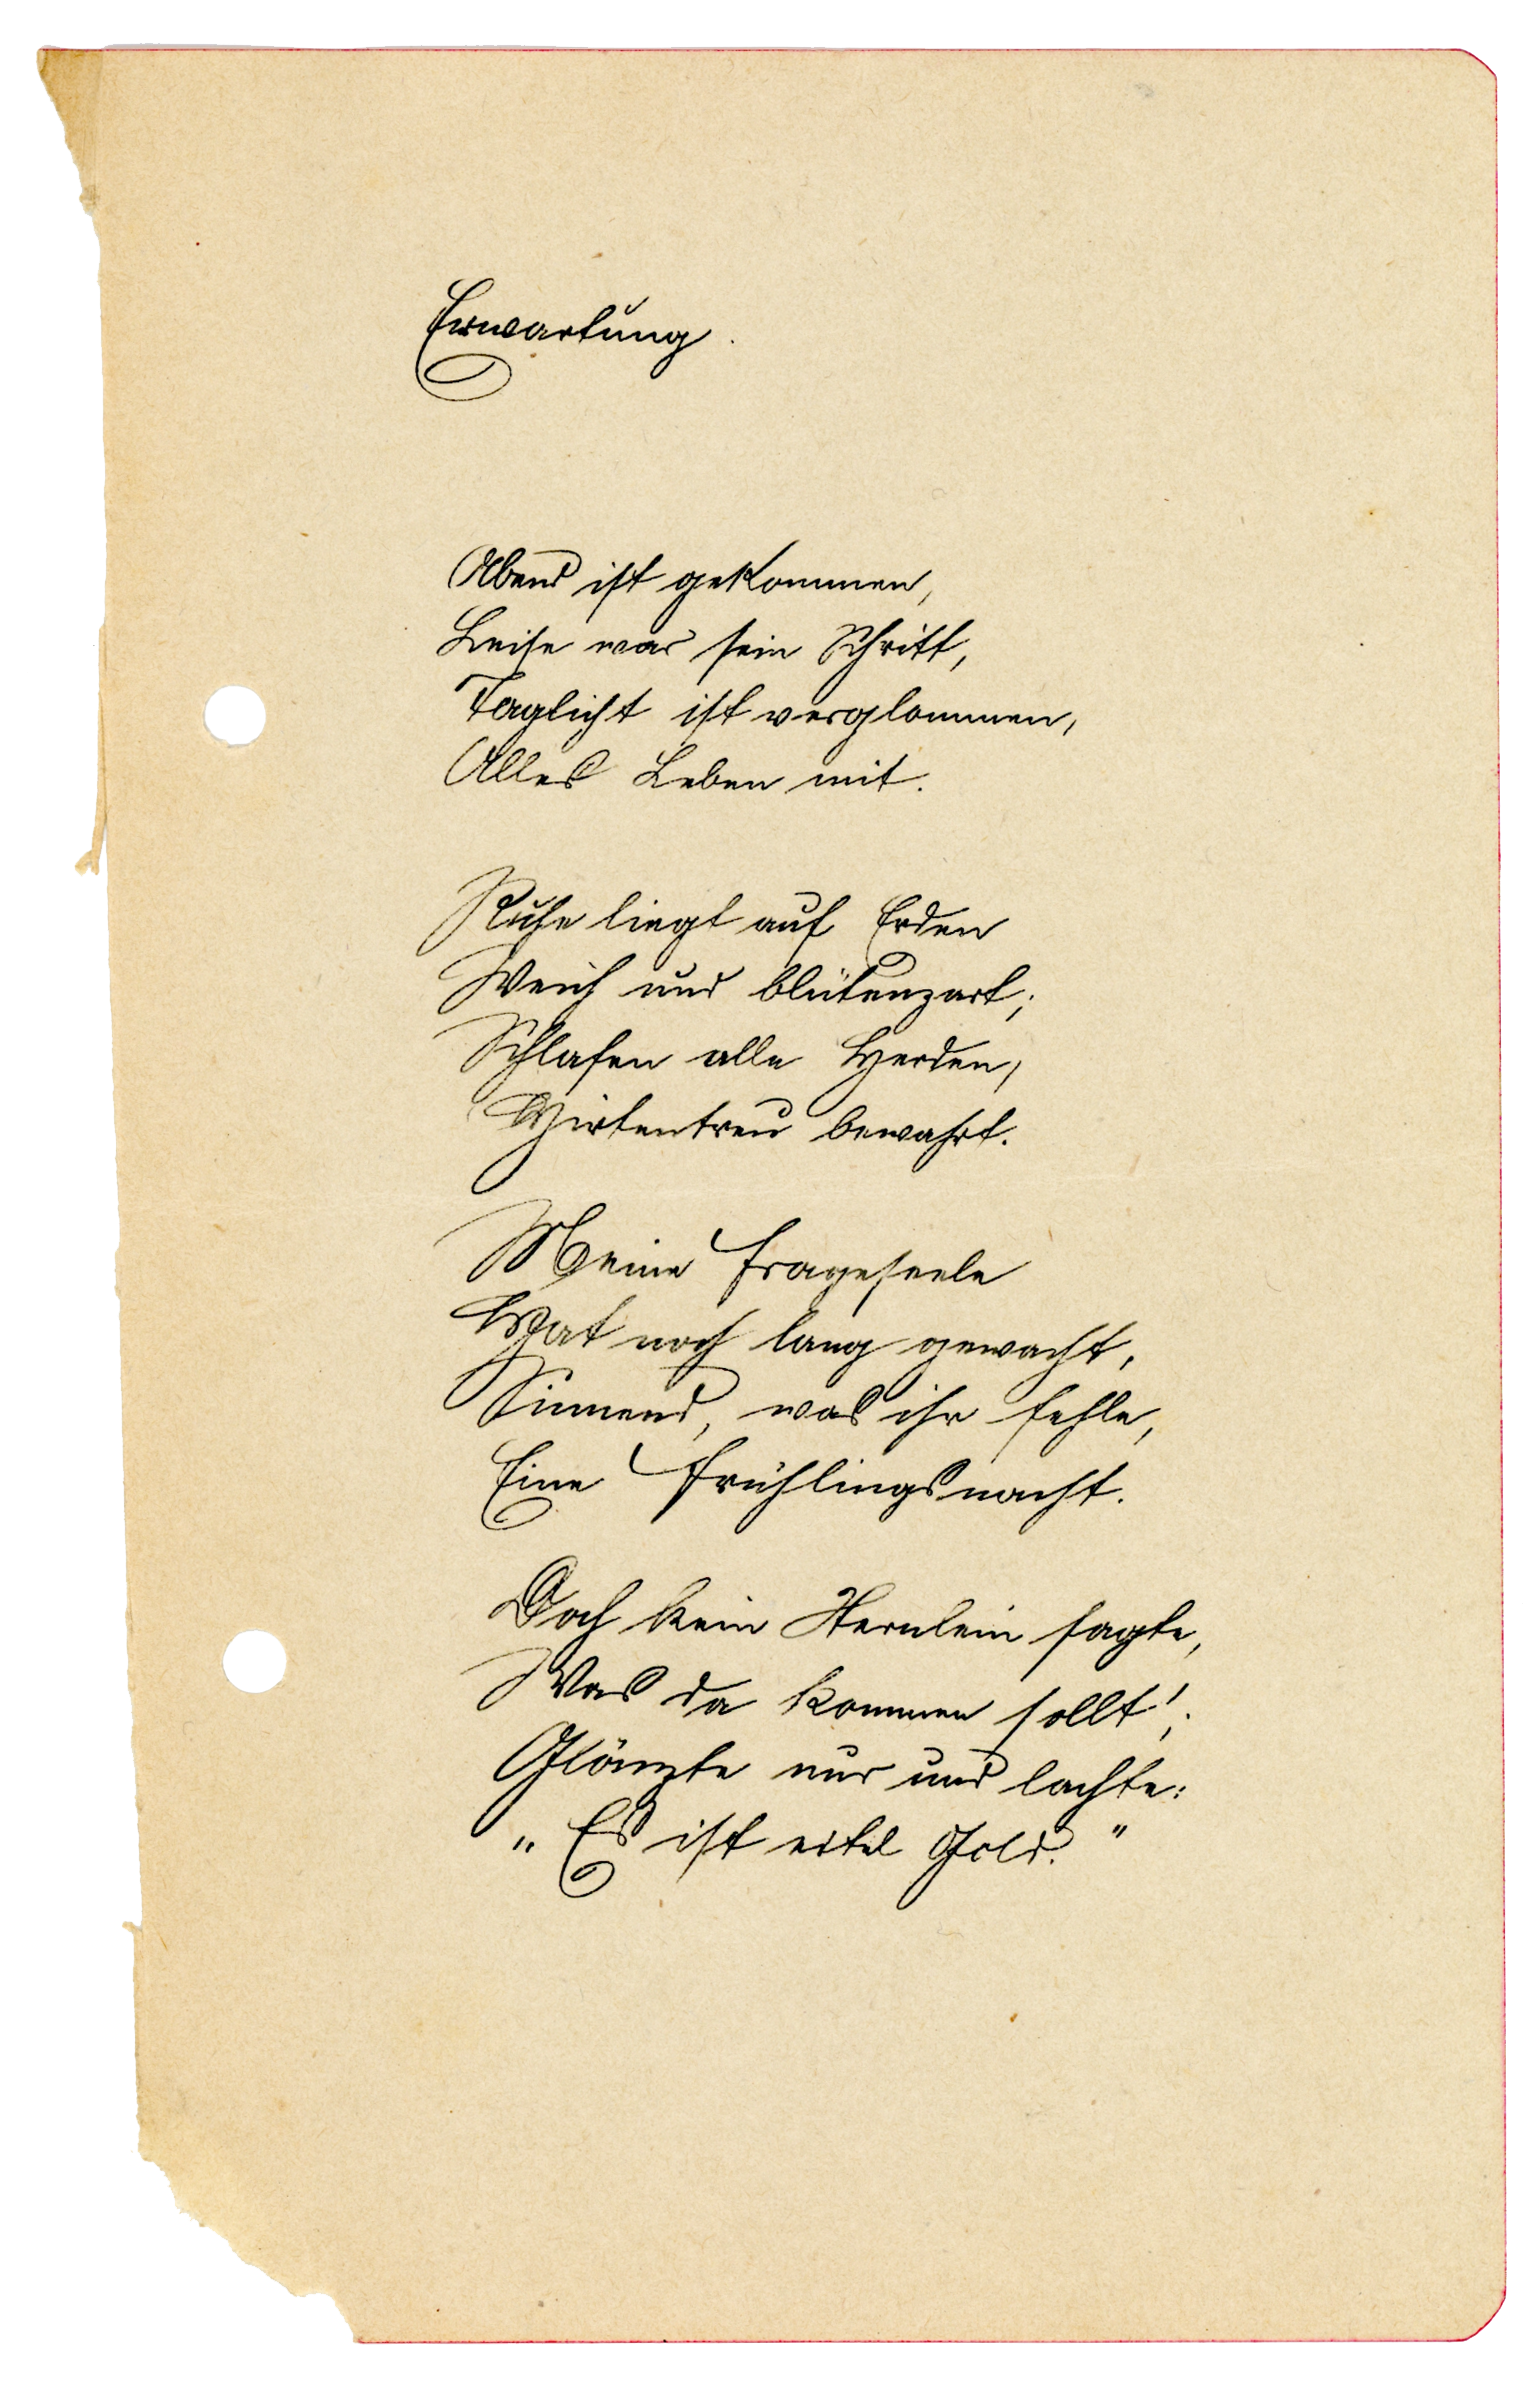 Erwartung.
Abend ist gekommen,
Leise war sein Schritt,
Taglicht ist verglommen,
Alles Leben mit.
Ruhe liegt auf Erden
Weich und blütenzart;
Schlafen alle Herden,
Hirtentreu bewahrt.
Meine Frageseele
Hat noch lang gewacht,
Sinnend, was ihr fehle,
Eine Frühlingsnacht.
Doch kein Sternlein sagte,
Was da kommen sollt';
Glänzte nur und lachte:
„Es ist eitel Gold."